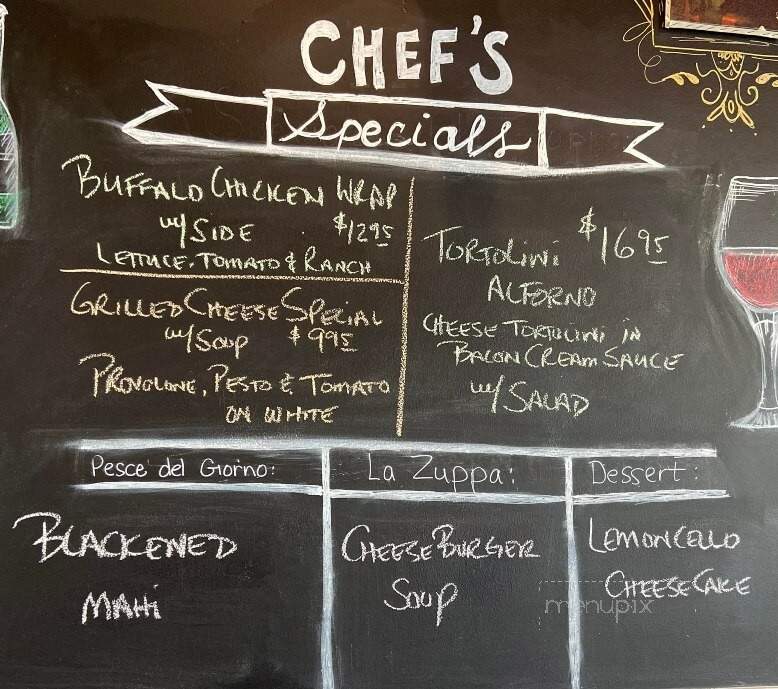 CHEF'S
Specials
BUFFALO CHICKEN WRAP
w/ SIDE $12.95
LETTUCE, TOMATO & RANCH
GRILLED CHEESE SPECIAL
w/ Soup $9.95
PROVOLONE, PESTO & TOMATO
ON WHITE
TORTOLINI $16.95
ALFORNO
CHEESE TORTOLINI IN
BACON CREAM SAUCE
w/ SALAD
Pesce del Giorno:
BLACKENED
MAHI
La Zuppa:
CHEESE BURGER
Soup
Dessert:
LEMONCELLO
CHEESECAKE
menupix